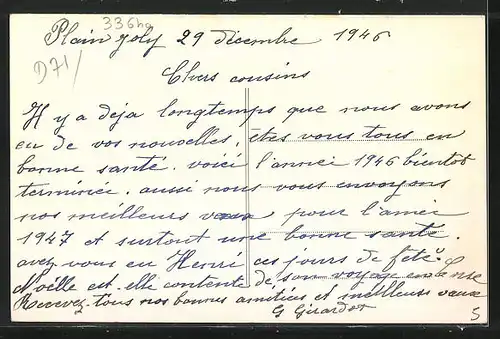 336hg
Plain joly 29 décembre 1946
D71/
Chers cousins
Il y a deja longtemps que nous avons
eu de vos nouvelles, êtes vous tous en
bonne santé. voici l'année 1946 bientot
terminée. aussi nous vous envoyons
nos meilleurs vœux pour l'année
1947 et surtout une bonne santé.
avez vous eu Henri ces jours de fête.
Noëlle est-elle contente de son voyage en
Recevez tous nos bonnes amitiées et meilleurs vœux
G Girardot
S